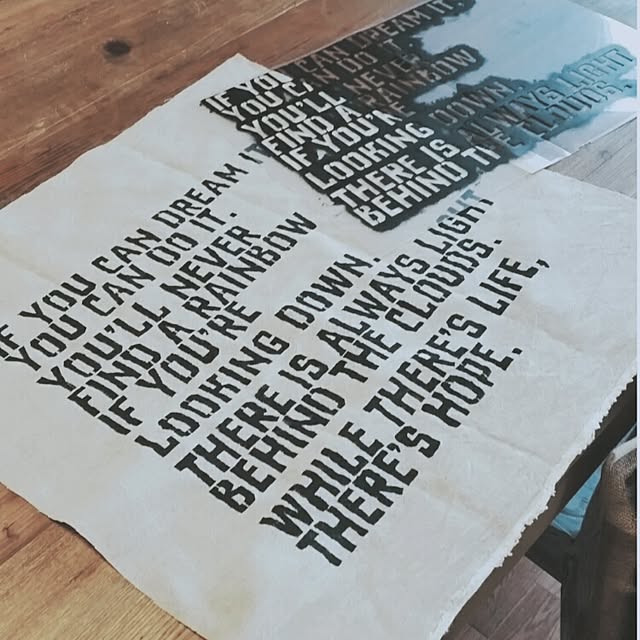 IF YOU CAN DREAM IT.
YOU CAN DO IT.
YOU'LL NEVER
FIND A RAINBOW
IF YOU'RE
LOOKING DOWN.
THERE IS ALWAYS LIGHT
BEHIND THE CLOUDS.
IF YOU CAN DREAM IT
YOU CAN DO IT.
YOU'LL NEVER
FIND A RAINBOW
IF YOU'RE
LOOKING DOWN.
THERE IS ALWAYS LIGHT
BEHIND THE CLOUDS.
WHILE THERE'S LIFE,
THERE'S HOPE.